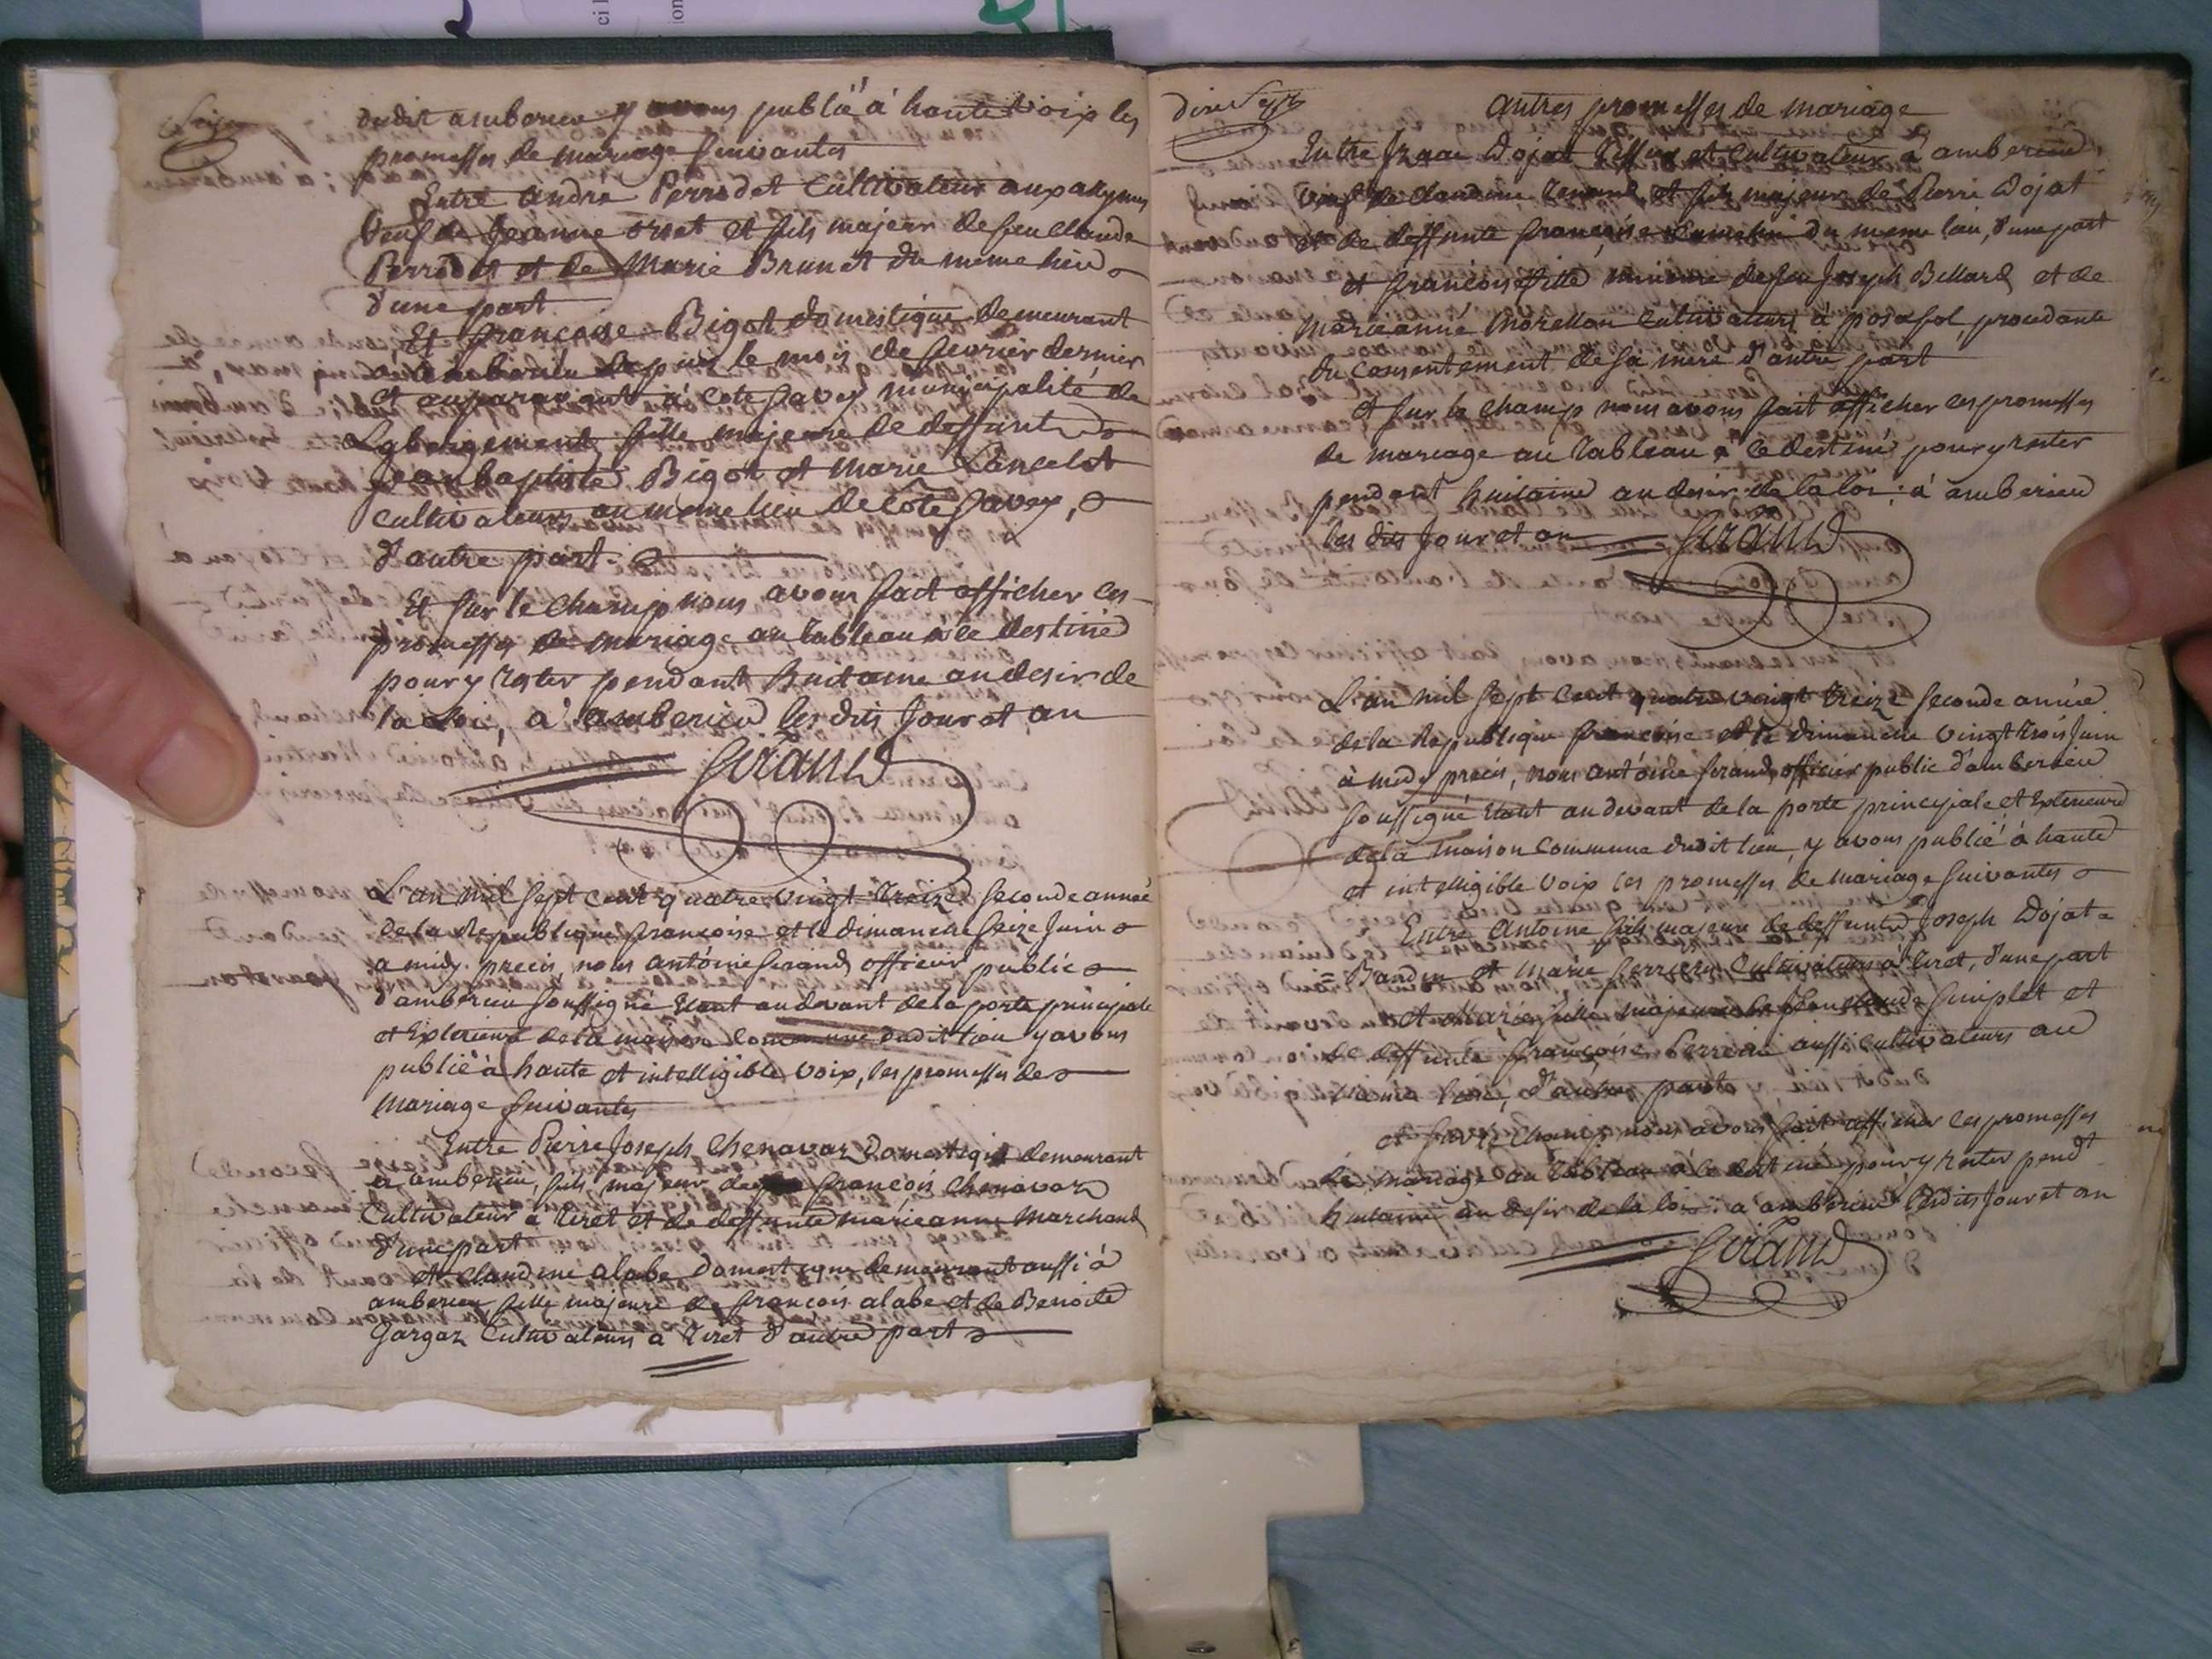 Seize
dudit amberieu y avons publié à haute voix les
promesses de mariage suivantes
Entre andré Perrodet Cultivateur aux allymes
veuf de Jeanne orset et fils majeur de feu claude
Perrodet et de Marie Brunet du même lieu
d'une part
Et françoise Bigot domestique demeurant
à amberieu depuis le mois de fevrier dernier
et auparavant à cote savey municipalité de
fille majeure de deffunt
Jean baptiste Bigot et Marie Lancelot
cultivateurs au meme lieu de cote savey,
d'autre part.
Et sur le champ nous avons fait afficher ces
promesses de mariage au tableau à ce destiné
pour y rester pendant huitaine au desir de
la loi, à amberieu les dits Jour et an
Girand
L'an mil sept cent quatre vingt treize seconde année
de la Republique françoise et le dimanche seize Juin
a midy precis, nous antoine Girand officier public
d'amberieu soussigné etant au devant de la porte principale
et Exterieure de la maison commune dudit lieu y avons
publié à haute et intelligible voix, les promesses de
mariage suivantes
Entre Pierre Joseph Chenavaz Domestique demeurant
a amberieu, fils majeur de françois Chenavaz
Cultivateur à tiret et de deffunte marieanne Marchand
d'une part
et claudine alabe domestique demeurant aussi à
amberieu fille majeure de françois alabe et de Benoite
Gargaz Cultivateurs à tiret d'autre part
dixsept
autres promesses de mariage
Entre Izaac Dojat Tissier et Cultivateur à amberieu,
veuf de claudine Renand, et fils majeur de Pierre Dojat
et de deffunte françoise du meme lieu, d'une part
et françoise fille mineure de feu Joseph Billard et de
Marieanne Morellon Cultivateurs à posafol, procedante
du consentement de sa mere d'autre part
et sur le champ nous avons fait afficher ces promesses
de mariage au tableau à ce destiné pour y rester
pendant huitaine au desir de la loi: à amberieu
les dits Jour et an
Girand
L'an mil sept cent quatre vingt treize seconde année
de la Republique françoise et le dimanche vingt trois Juin
à midy precis, nous antoine Girand, officier public d'amberieu
soussigné Etant au devant de la porte principale et Exterieure
de la maison commune dudit lieu, y avons publié à haute
et intelligible voix les promesses de mariage suivantes
Entre Antoine fils majeur de deffunte Joseph Dojat
Bardin et Marie Cultivateurs à tiret, d'une part
et Marie fille majeure de feu claude Guiplet et
de deffunte françoise Perrein aussi cultivateurs au
meme lieu, d'autre part
et sur le champ nous avons fait afficher ces promesses
de mariage au tableau à ce destiné pour y rester pendt
huitaine au desir de la loi: a amberieu lesdits Jour et an
Girand